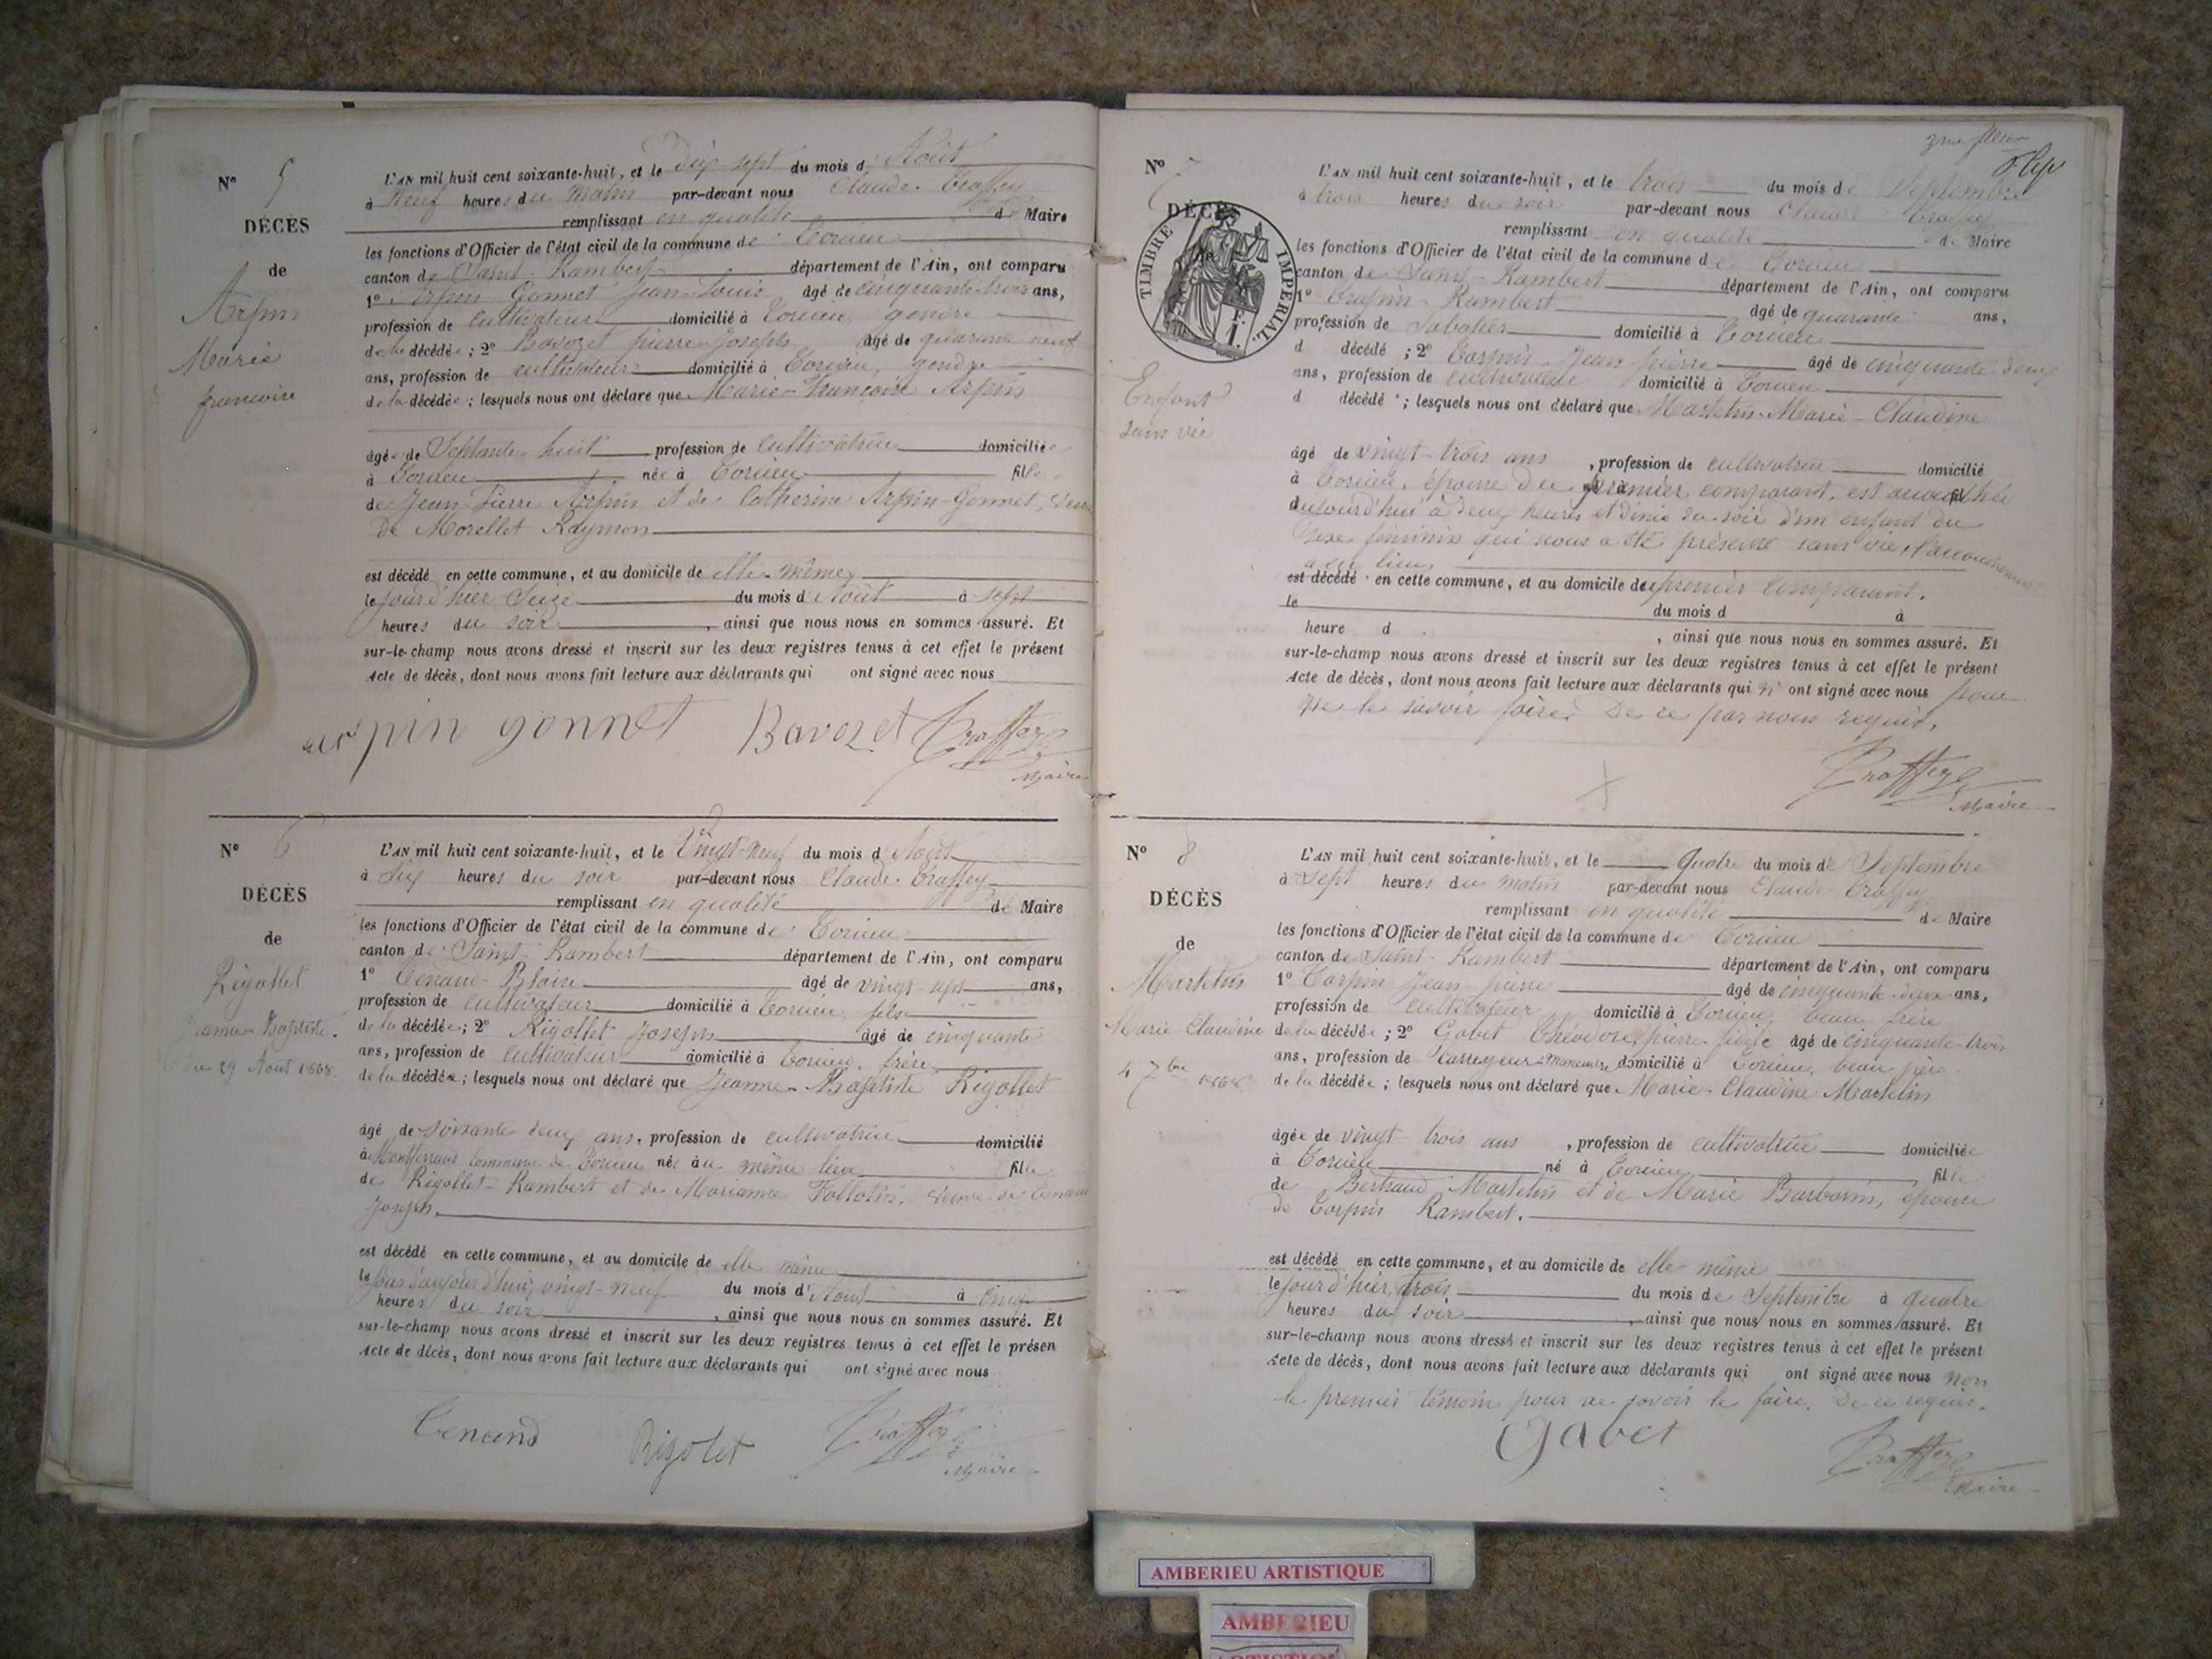 N° 5
DÉCÈS
de
Arpin
Marie
françoise
L'AN mil huit cent soixante-huit, et le Dix-sept du mois d'Août
à Neuf heures du matin par-devant nous Claude
remplissant en qualité de Maire
les fonctions d'Officier de l'état civil de la commune de Torcieu
canton de Saint-Rambert département de l'Ain, ont comparu
1° Arpin Gonnet Jean-Louis âgé de cinquante-trois ans,
profession de cultivateur domicilié à Torcieu, gendre
de la décédée ; 2° Bavozet pierre-Joseph âgé de quarante neuf
ans, profession de cultivateur domicilié à Torcieu, gendre
de la décédée ; lesquels nous ont déclaré que Marie-Françoise Arpin
âgée de Septante-huit profession de cultivatrice domiciliée
à Torcieu née à Torcieu fille
de Jean-Pierre Arpin et de Catherine Arpin-Gonnet,
de Morellet Raymon
est décédé en cette commune, et au domicile de elle-même
le jour d'hier Seize du mois d'Août à sept
heures du soir, ainsi que nous nous en sommes assuré. Et
sur-le-champ nous avons dressé et inscrit sur les deux registres tenus à cet effet le présent
Acte de décès, dont nous avons fait lecture aux déclarants qui ont signé avec nous
arpin gonnet Bavozet
Maire
N° 6
DÉCÈS
de
Rigollet
Jeanne-Baptiste.
29 Aout 1868.
L'AN mil huit cent soixante-huit, et le Vingt-neuf du mois d'Août
à Six heures du soir par-devant nous Claude
remplissant en qualité de Maire
les fonctions d'Officier de l'état civil de la commune de Torcieu
canton de Saint-Rambert département de l'Ain, ont comparu
1° Tenand Blaise âgé de vingt-sept ans,
profession de cultivateur domicilié à Torcieu, fils
de la décédée ; 2° Rigollet Joseph âgé de cinquante
ans, profession de cultivateur domicilié à Torcieu, frère
de la décédée ; lesquels nous ont déclaré que Jeanne-Baptiste Rigollet
âgé de soixante-deux ans, profession de cultivatrice domicilié
à Montferrand commune de Torcieu née au même lieu fille
de Rigollet-Rambert et de Marianne veuve de Tenand
Joseph.
est décédé en cette commune, et au domicile de elle même
le jour d'aujourd'hui, vingt-neuf du mois d'Aout à cinq
heures du soir, ainsi que nous nous en sommes assuré. Et
sur-le-champ nous avons dressé et inscrit sur les deux registres tenus à cet effet le présen
Acte de décès, dont nous avons fait lecture aux déclarants qui ont signé avec nous
Tenand Rigolet
Maire
N° 7
DÉCÈS
TIMBRE IMPERIAL
Enfant
sans vie
L'AN mil huit cent soixante-huit, et le trois du mois de Septembre
à trois heures du soir par-devant nous Claude
remplissant en qualité de Maire
les fonctions d'Officier de l'état civil de la commune de Torcieu
canton de Saint-Rambert département de l'Ain, ont comparu
1° Rambert âgé de quarante ans,
profession de Sabotier domicilié à Torcieu
d décédé ; 2° Torpin Jean pierre âgé de cinquante deux
ans, profession de cultivateur domicilié à Torcieu
d décédé ; lesquels nous ont déclaré que Martelin Marie-Claudine
âgé de vingt-trois ans, profession de cultivatrice domicilié
à Torcieu, épouse du premier comparant, est accouchée
aujourd'hui à deux heures et demie du soir d'un enfant du
sexe féminin qui nous a été présenté sans vie, l'accouchement
a eu lieu
est décédé en cette commune, et au domicile du premier comparant.
le du mois d à
heure d , ainsi que nous nous en sommes assuré. Et
sur-le-champ nous avons dressé et inscrit sur les deux registres tenus à cet effet le présent
Acte de décès, dont nous avons fait lecture aux déclarants qui n'ont signé avec nous pour
ne le savoir faire. De ce par nous requis.
Maire
N° 8
DÉCÈS
de
Martelin
Marie-Claudine
4 7bre 1868
L'AN mil huit cent soixante-huit, et le Quatre du mois de Septembre
à Sept heures du matin par-devant nous Claude
remplissant en qualité de Maire
les fonctions d'Officier de l'état civil de la commune de Torcieu
canton de Saint-Rambert département de l'Ain, ont comparu
1° Torpin Jean pierre âgé de cinquante-deux ans,
profession de cultivateur domicilié à Torcieu, beau frère
de la décédée ; 2° Gabet Théodore, pierre âgé de cinquante-trois
ans, profession de domicilié à Torcieu, beau père
de la décédée ; lesquels nous ont déclaré que Marie-Claudine Martelin
âgée de vingt-trois ans, profession de cultivatrice domiciliée
à Torcieu né à Torcieu, fille
de Bertrand Martelin et de Marie Barbarin, épouse
de Torpin Rambert.
est décédé en cette commune, et au domicile de elle même
le jour d'hier, trois du mois de Septembre à quatre
heures du soir, ainsi que nous nous en sommes assuré. Et
sur-le-champ nous avons dressé et inscrit sur les deux registres tenus à cet effet le présent
Acte de décès, dont nous avons fait lecture aux déclarants qui ont signé avec nous non
le premier témoin pour ne savoir le faire. De ce requis.
Gabet
Maire
AMBERIEU ARTISTIQUE
AMBERIEU
ARTISTIQUE